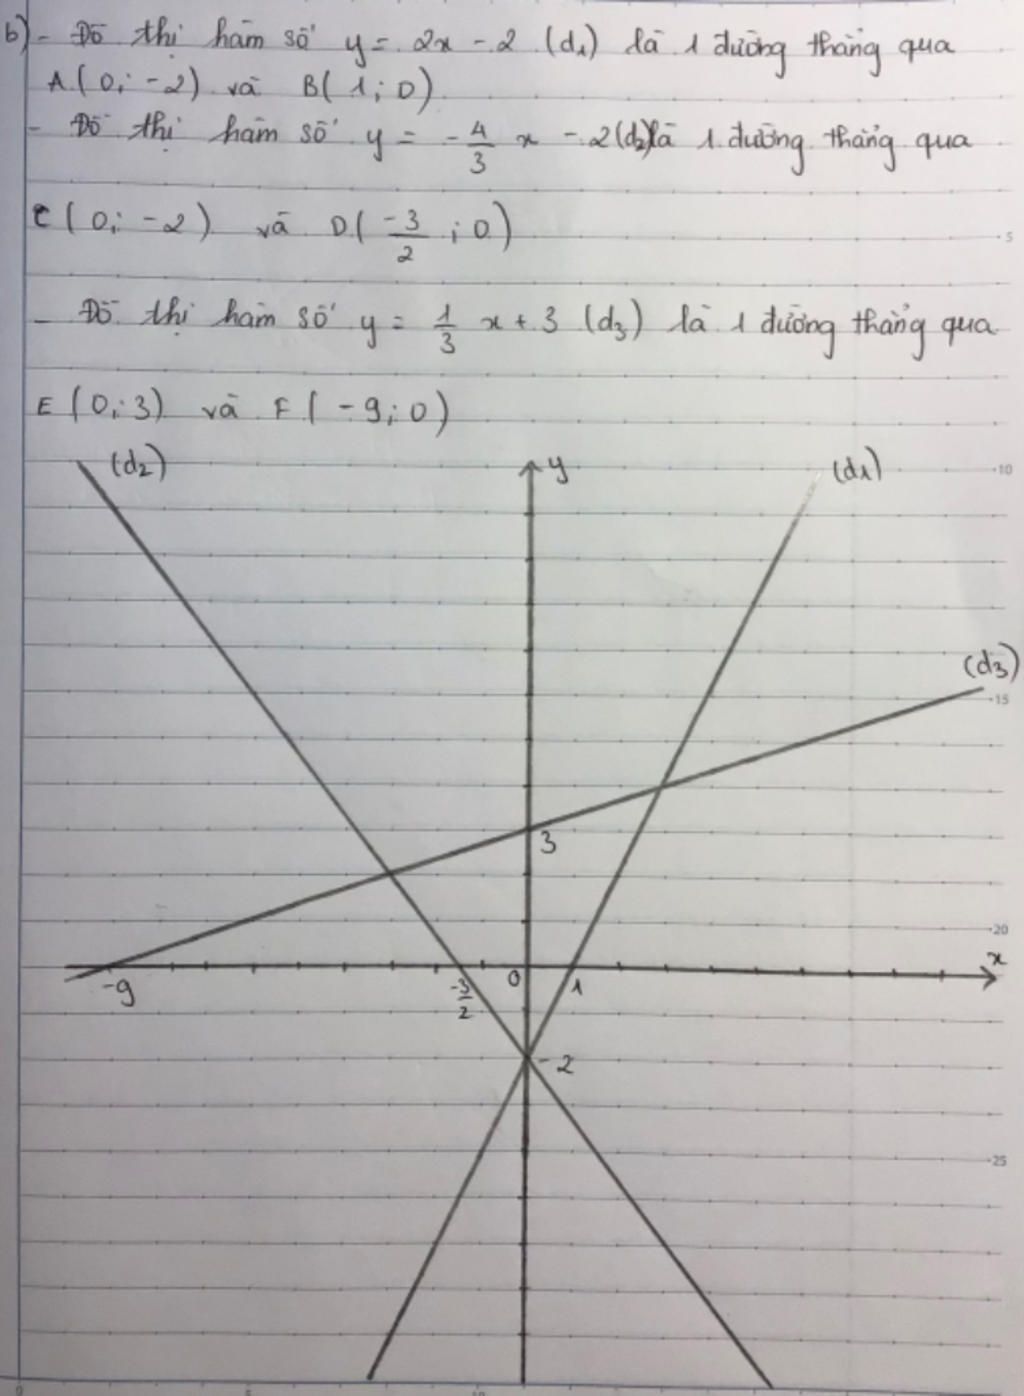 b) - Đồ thị hàm số y = 2x - 2 (d₁) là 1 đường thẳng qua
A(0; -2) và B(1; 0)
- Đồ thị hàm số y = -4/3 x - 2 (d₂) là 1 đường thẳng qua
C(0; -2) và D(-3/2; 0)
- Đồ thị hàm số y = 1/3 x + 3 (d₃) là 1 đường thẳng qua
E(0; 3) và F(-9; 0)
(d₂) y (d₁)
10
(d₃)
15
3
20
x
-9 -3/2 0 1
-2
25
0 5 10
5